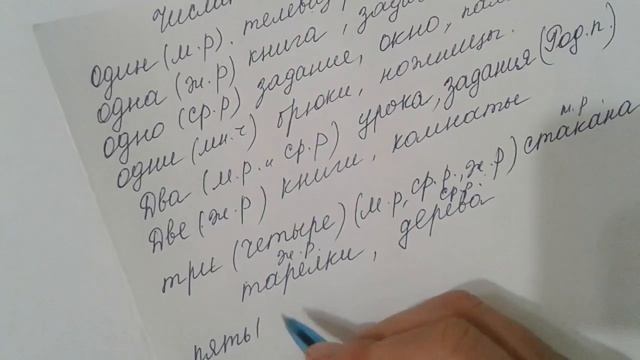 Числи
один (м.р). телевиз
одна (ж.р) книга, зада
одно (ср.р) задание, окно, пал
одни (мн.ч) брюки, ножницы.
Два (м.р. и ср.р) урока, задания (Род.п.)
Две (ж.р) книги, комнаты
три (четыре) (м.р, ср.р., ж.р) стакана м.р
тарелки ж.р., дерева ср.р.
пять